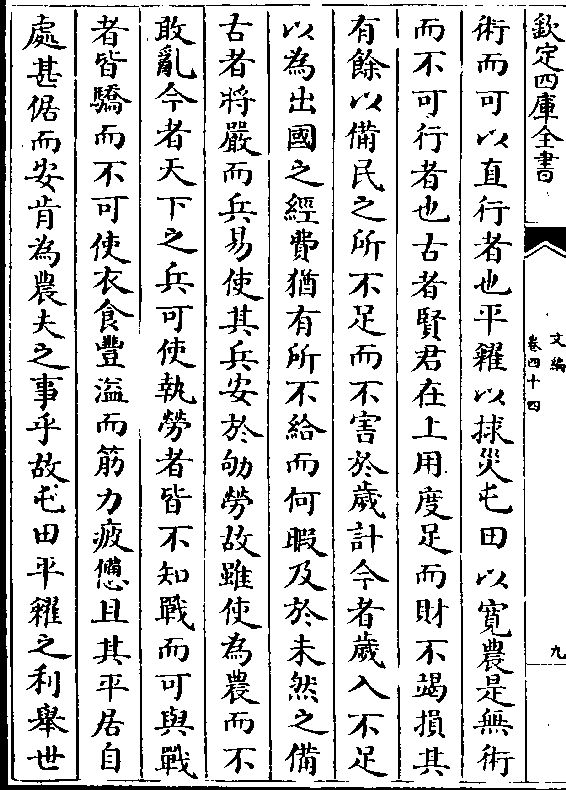 欽定四庫全書
文編
卷四十四
九
術而可以直行者也平糴以捄災屯田以寛農是無術
而不可行者也古者賢君在上用度足而財不竭損其
有餘以備民之所不足而不害於歳計今者歳入不足
以為出國之經費猶有所不給而何暇及於未然之備
古者將嚴而兵易使其兵安於劬勞故雖使為農而不
敢亂今者天下之兵可使執勞者皆不知戰而可與戰
者皆驕而不可使衣食豐溢而筋力疲憊且其平居自
處甚倨而安肯為農夫之事乎故屯田平糴之利舉世